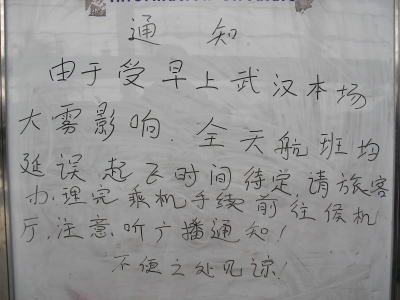 通 知
由于受早上武汉本场
大雾影响. 全天航班均
延误, 起飞时间待定, 请旅客
办理完乘机手续前往候机
厅, 注意听广播通知!
不便之处见谅!